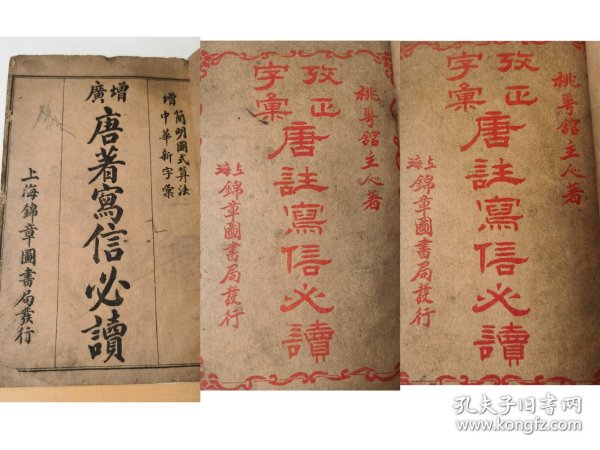 簡明圖式算法
增中華新字彙
增廣
唐著寫信必讀
上海錦章圖書局發行
館主人著
攷正
字彙
唐註寫信必讀
上海錦章圖書局發行
館主人著
攷正
字彙
唐註寫信必讀
上海錦章圖書局發行
孔夫子旧书网
www.kongfz.com